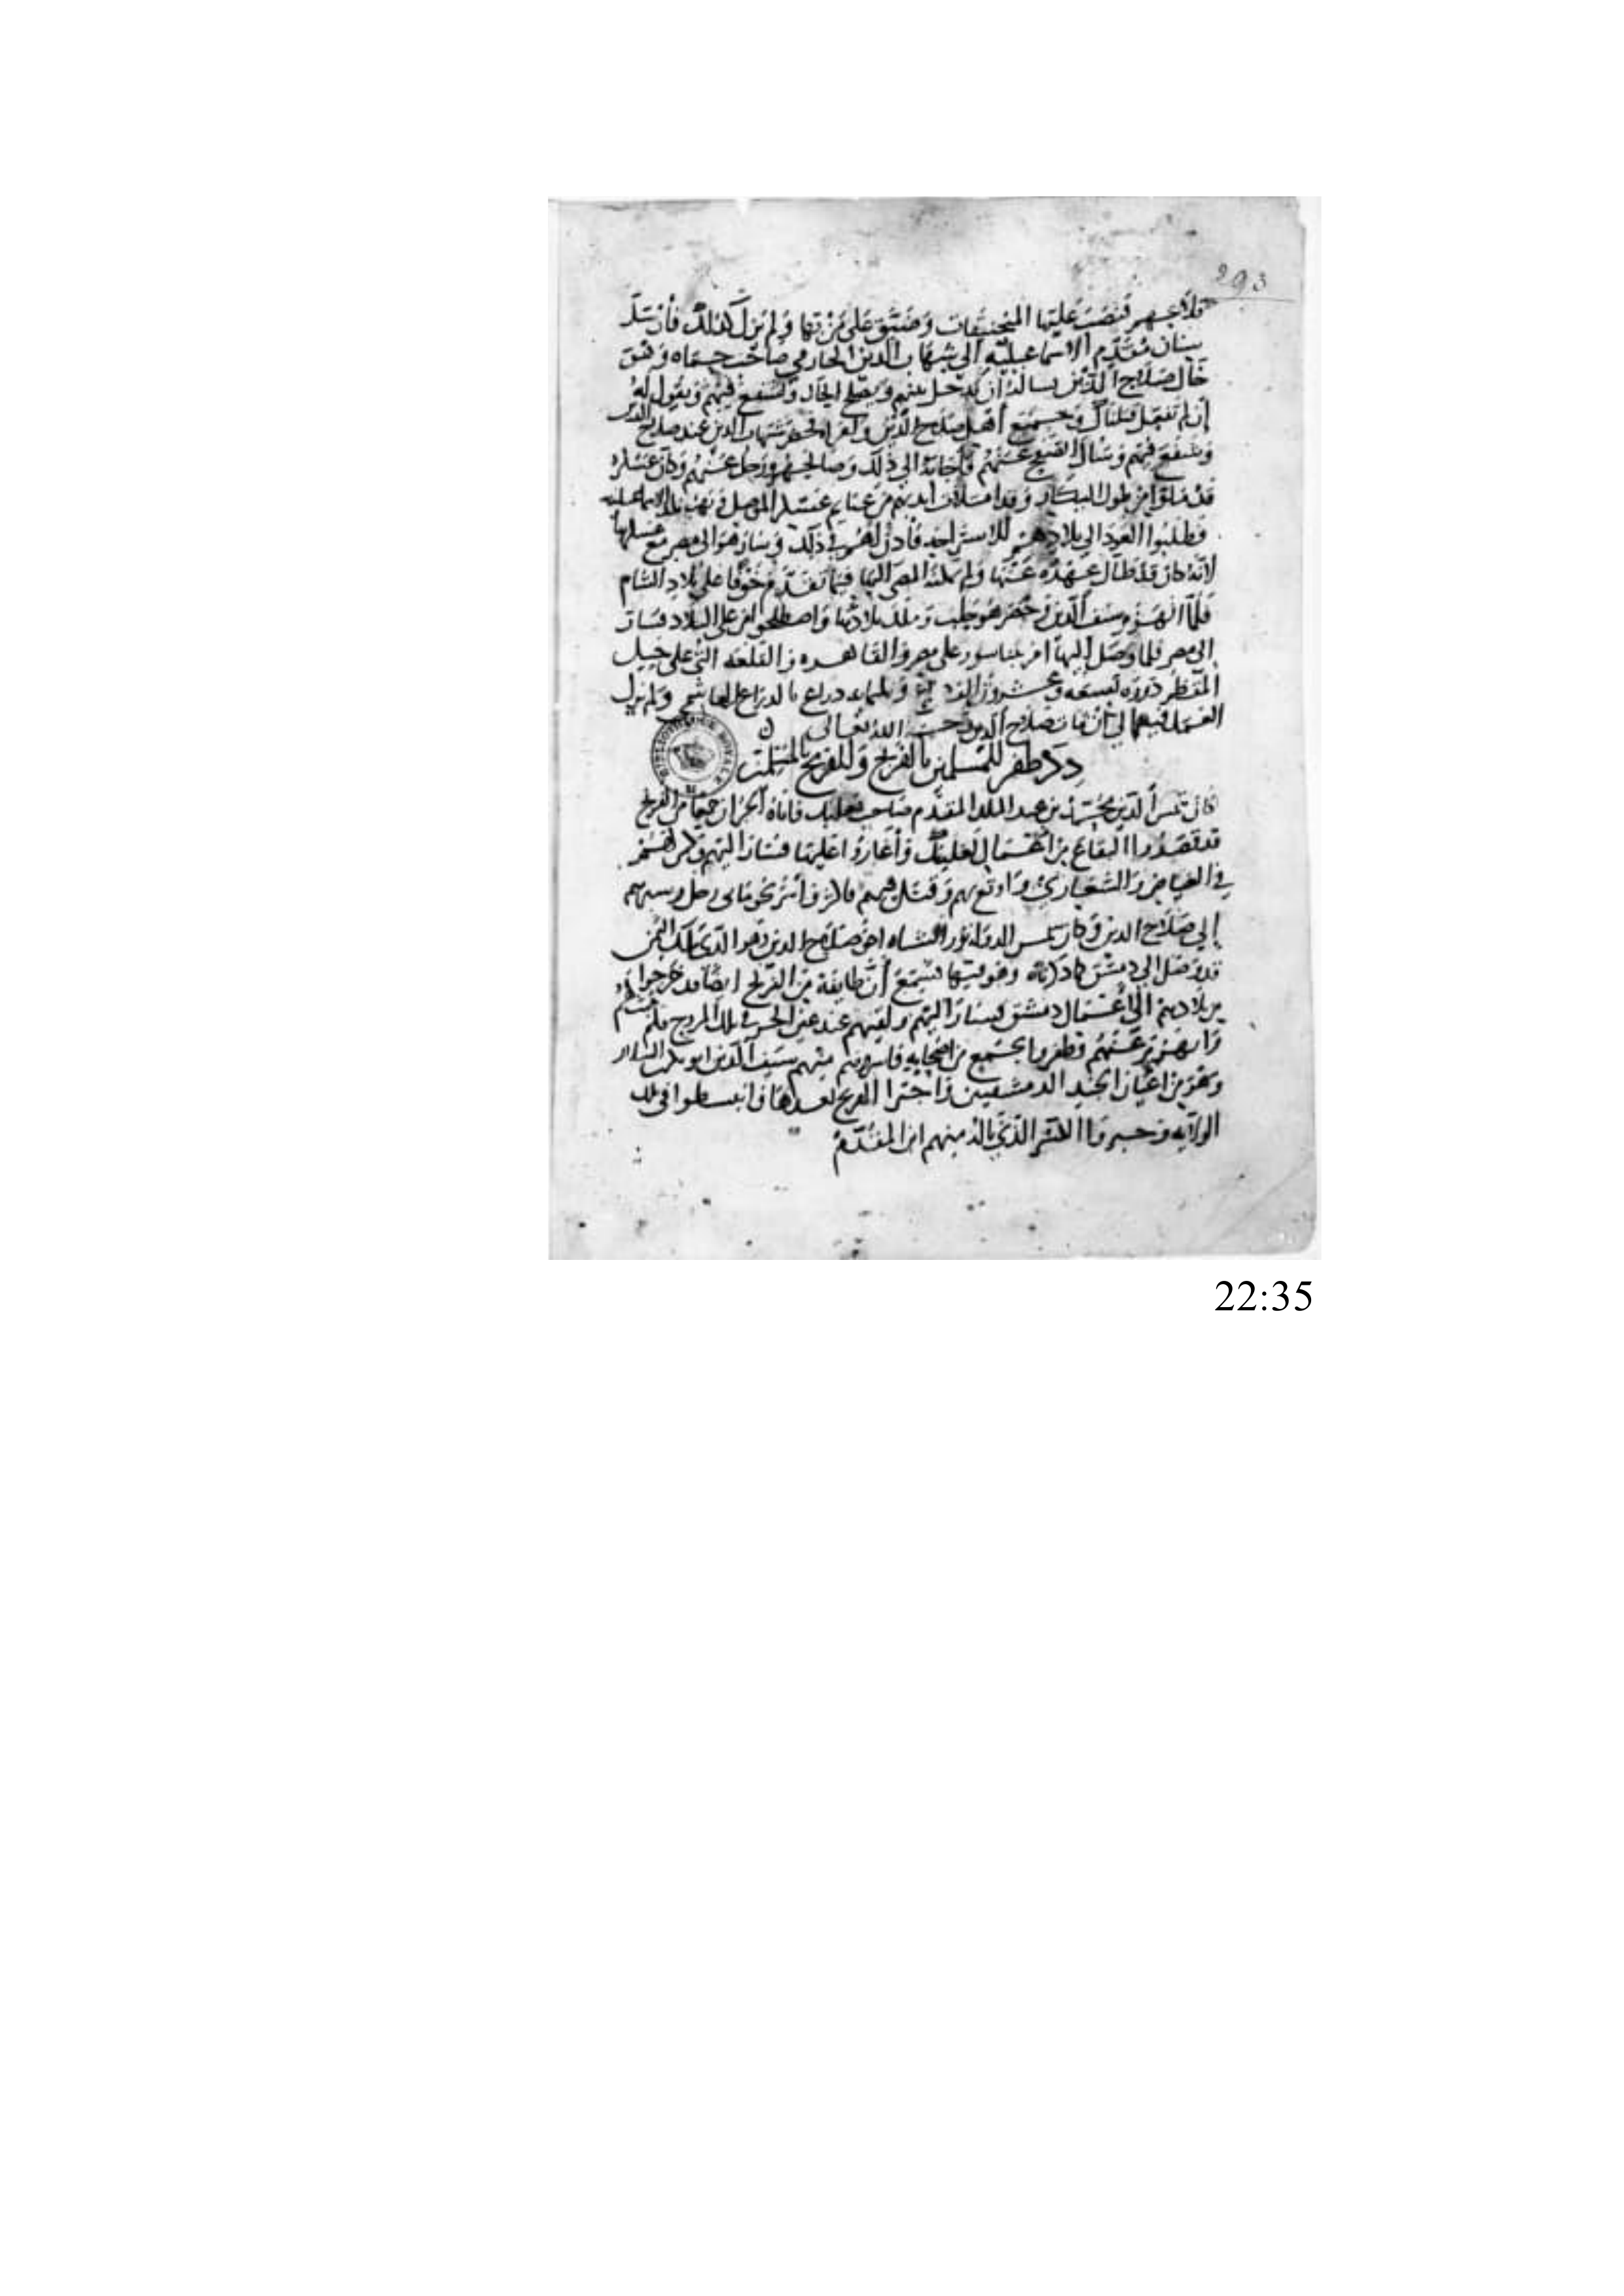 293
قلاعهم فنصب عليها المنجنيقات وضيق على من بها ولم يزل كذلك فأرسل
سنان مقدم الاسماعيليه الى شهاب الدين الحارمي صاحب حماه وهو
خال صلاح الدين يساله ان يدخل بينهم ويصلح الحال ويشفع فيهم ويقول له
إن لم تفعل قتلناك وجميع أهل صلاح الدين وامراه فحضر شهاب الدين عند صلاح الدين
وشفع فيهم وسأل الصفح عنهم فأجابه الى ذلك وصالحهم ورحل عنهم وكان عسكره
قد ملوا من طول البيكار وقد امتلات ايديهم من غنايم عسكر الموصل ونهب بلد الاسماعيليه
فطلبوا العود الى بلادهم للاستراحه فأذن لهم في ذلك وسار هو الى مصر مع عسكرها
لأنه كان قد طال عهده عنها ولم يمكنه المضي اليها فيما تقدم خوفا على بلاد الشام
فلما انهزم سيف الدين وحصر هو حلب وملك بلادها واصطلحوا امن على البلاد فسار
الى مصر فلما وصل إليها امر ببنا سور على مصر والقاهره والقلعه التي على جبل
المقطم دوره تسعه وعشرون الف ذراع وثلثمايه ذراع بالذراع الهاشمي ولم يزل
العمل فيه الى أن مات صلاح الدين رحمه الله تعالى
ذكر ظفر للمسلمين بالفرنج وللفرنج بالمسلمين
كان شمس الدين محمد بن عبد الملك المقدم صاحب بعلبك فاتاه الخبر ان جمعا من الفرنج
قد قصدوا البقاع من اعمال بعلبك وأغاروا عليها فسار اليهم وكمن لهم
في الغياض والشعاري واوقع بهم وقتل فيهم فاكثر وأسر نحو مايتي رجل وسيرهم
إلى صلاح الدين وكان شمس الدوله تورانشاه اخو صلاح الدين وهو الذي ملك اليمن
قد وصل الى دمشق كما ذكرناه وهو فيها فسمع أن طايفة من الفرنج ايضا قد خرجوا
من بلادهم الى أعمال دمشق فسار اليهم ولقيهم عند عين الجر في تلك المروج فلم يثبت لهم
وانهزم عنهم فظفروا بجمع من اصحابه فاسروهم منهم سيف الدين ابو بكر بن السلار
وهو من اعيان الجند الدمشقيين واجترا الفرنج بعدها وانبسطوا في تلك
الولايه وجبروا الكسر الذي ناله منهم ابن المقدم
22:35